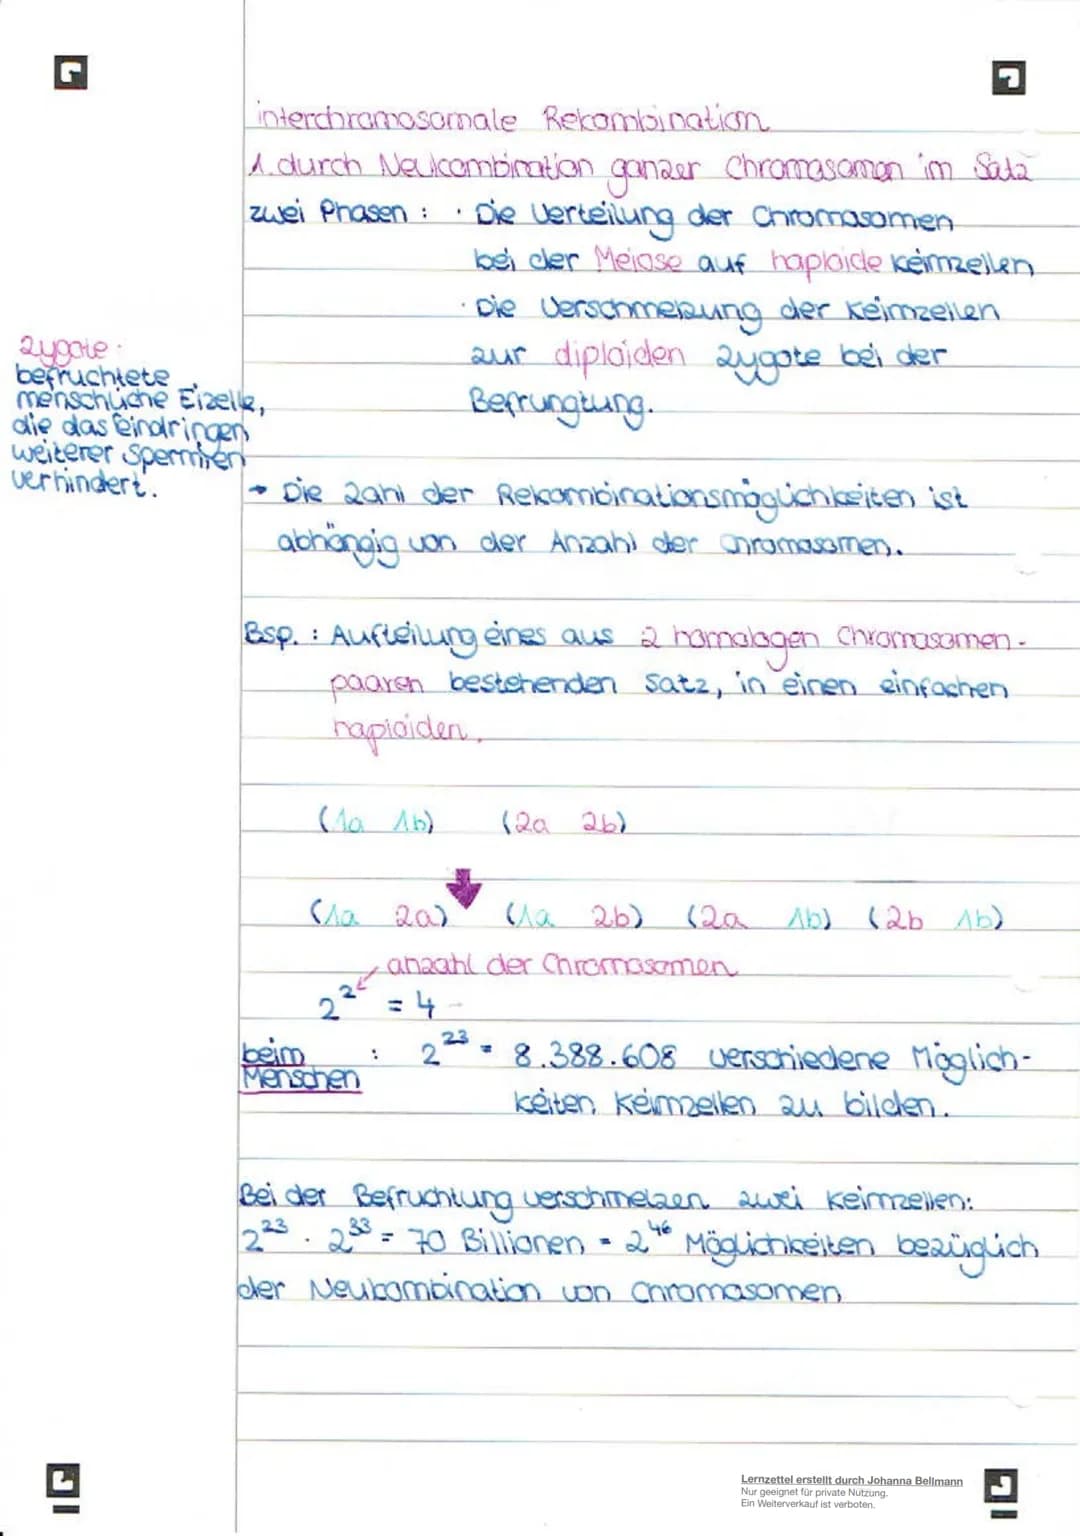 interchromosomale Rekombination
1. durch Neukombination ganzer Chromosomen im Satz
zwei Phasen : · Die Verteilung der Chromosomen
bei der Meiose auf haploide Keimzellen
· Die Verschmelzung der Keimzellen
zur diploiden Zygote bei der
Befrungtung.
Zygote:
befruchtete
menschliche Eizelle,
die das Eindringen
weiterer Spermien
verhindert.
→ Die Zahl der Rekombinationsmöglichkeiten ist
abhängig von der Anzahl der Chromosomen.
Bsp. : Aufteilung eines aus 2 homologen Chromosomen-
paaren bestehenden Satz, in einen einfachen
haploiden.
(1a 1b) (2a 2b)
(1a 2a) (1a 2b) (2a 1b) (2b 1b)
anzahl der Chromosomen
2² = 4
beim Menschen : 2²³ = 8.388.608 verschiedene Möglich-
keiten Keimzellen zu bilden.
Bei der Befruchtung verschmelzen zwei Keimzellen:
2²³ · 2³³ = 70 Billionen = 2⁴⁶ Möglichkeiten bezüglich
der Neukombination von Chromosomen
Lernzettel erstellt durch Johanna Bellmann
Nur geeignet für private Nutzung.
Ein Weiterverkauf ist verboten.